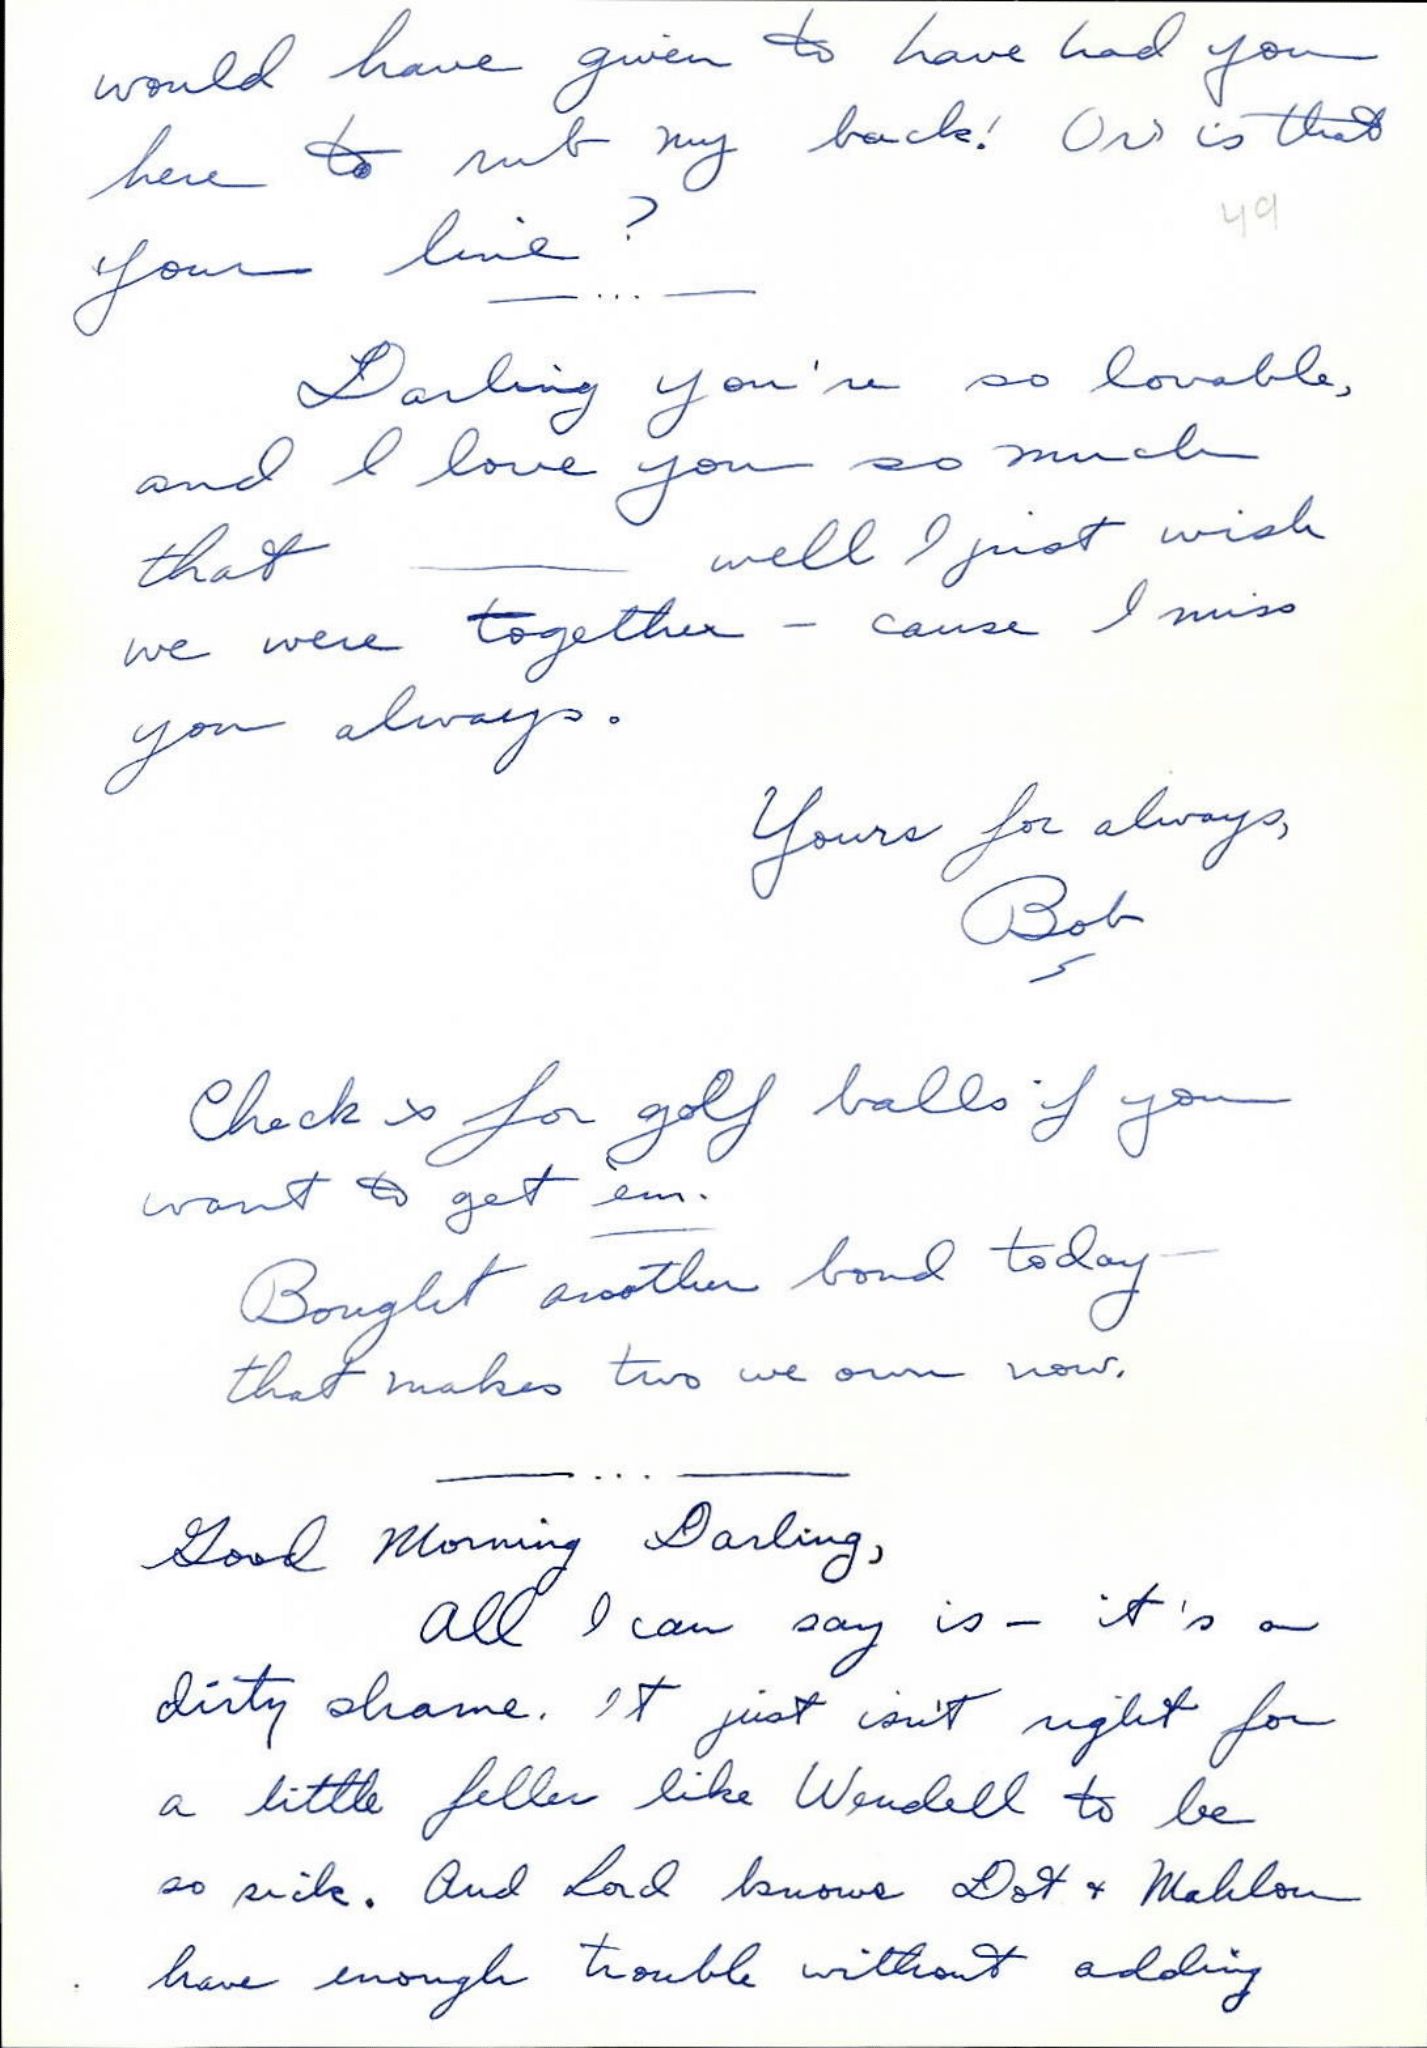 would have given to have had you
here to rub my back! Or is that
49
your line?
— ... —
Darling you're so lovable,
and I love you so much
that —— well I just wish
we were together - cause I miss
you always.
Yours for always,
Bob
Check is for golf balls if you
want to get 'em.
Bought another bond today —
that makes two we own now.
— ... —
Good Morning Darling,
All I can say is - it's a
dirty shame. It just isn't right for
a little feller like Wendell to be
so sick. And Lord knows Dot & Mahlon
have enough trouble without adding